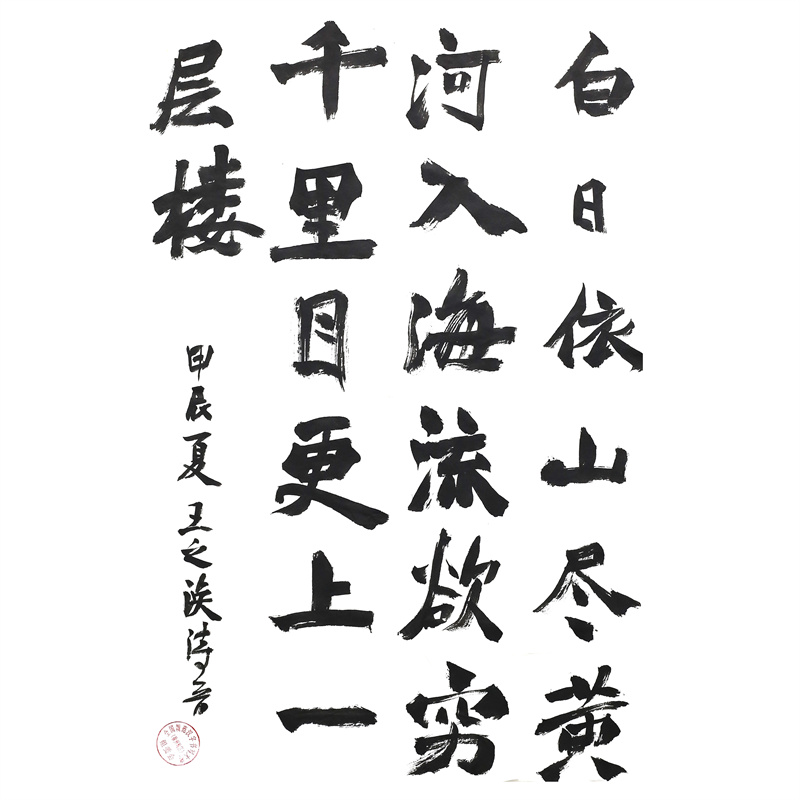 白日依山尽黄
河入海流欲穷
千里目更上一
层楼
甲辰夏王之涣诗一首